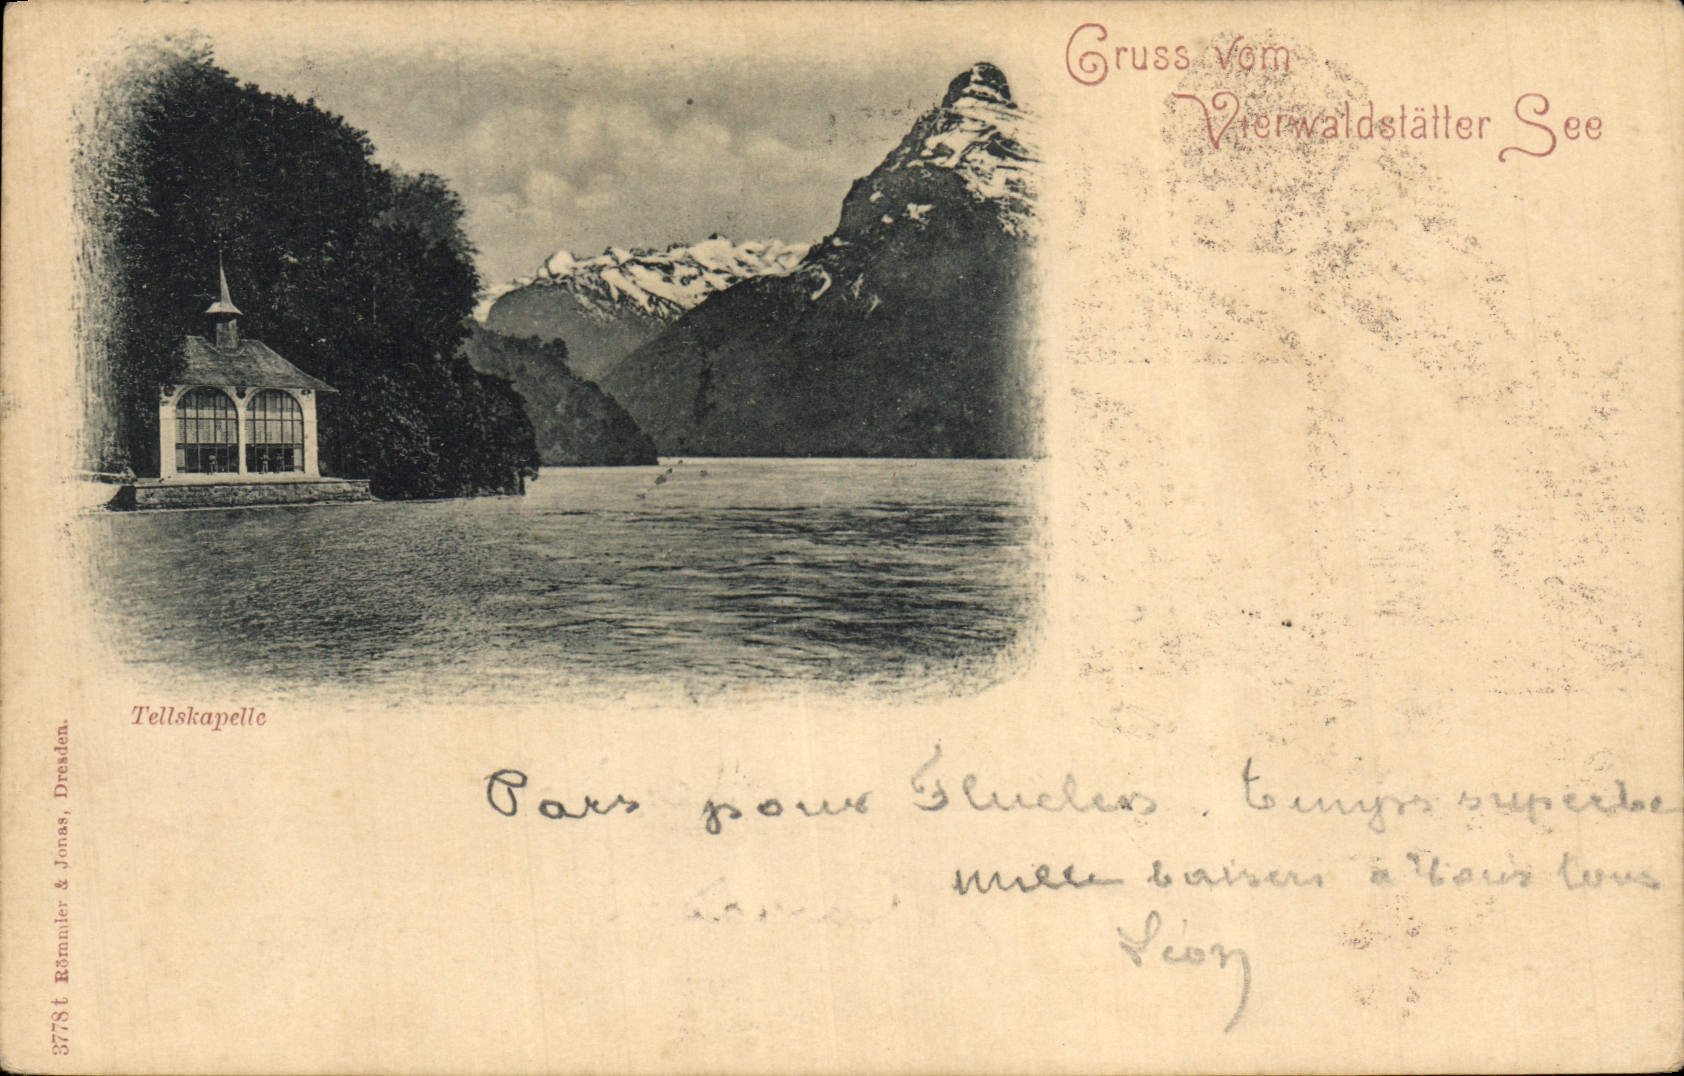 Gruss vom
Vierwaldstätter See
Tellskapelle
3778 t Römmler & Jonas, Dresden.
Pars pour Fluelen. Temps superbe
mille baisers à tous
Léon